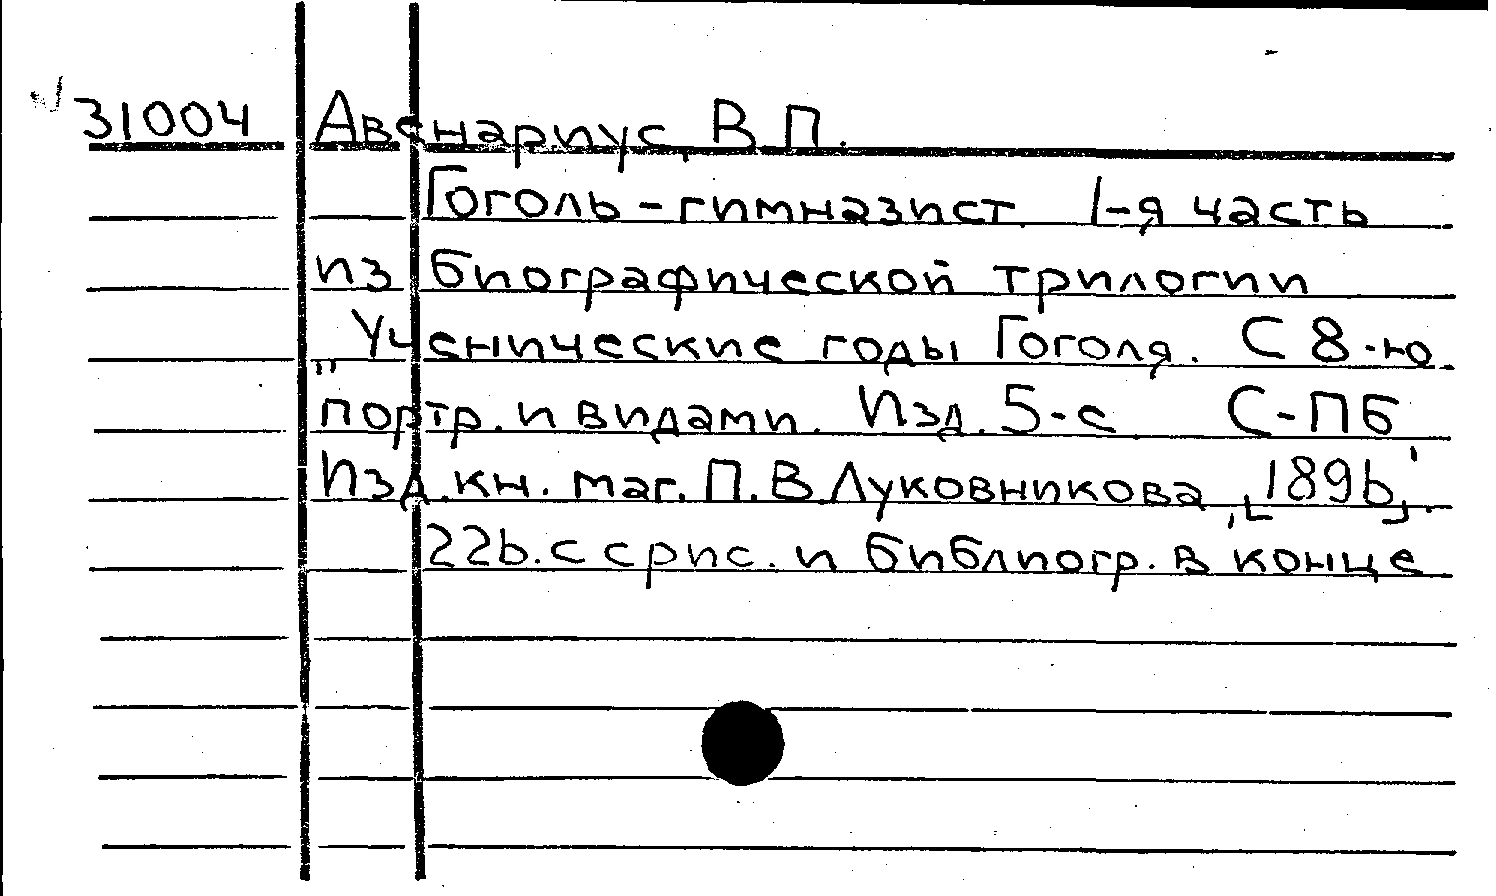 31004 Авенариус, В.П.
Гоголь-гимназист. 1-я часть
из биографической трилогии
„Ученические годы Гоголя. С 8-ю
портр. и видами. Изд. 5-е С-ПБ,
Изд. кн. маг. П.В. Луковникова, [1896].
226. с с рис. и библиогр. в конце